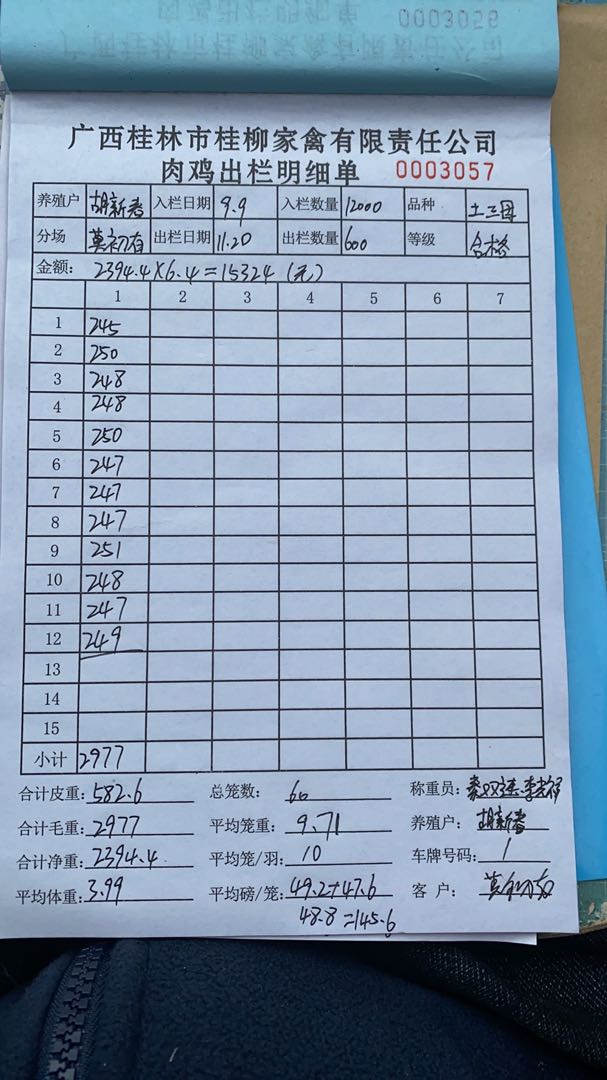 0003058
广西桂林市桂柳家禽有限责任公司
肉鸡出栏明细单 0003057
养殖户 胡新春 入栏日期 9.9 入栏数量 12000 品种 土三母
分场 莫初有 出栏日期 11.20 出栏数量 600 等级 合格
金额: 2394.4×6.4=15324 (元)
1 2 3 4 5 6 7
1 245
2 250
3 248
4 248
5 250
6 247
7 247
8 247
9 251
10 248
11 247
12 249
13
14
15
小计 2977
合计皮重: 582.6 总笼数: 60 称重员:
合计毛重: 2977 平均笼重: 9.71 养殖户: 胡新春
合计净重: 2394.4 平均笼/羽: 10 车牌号码: 1
平均体重: 3.99 平均磅/笼: 49.2+47.6 客户: 莫初有
48.8=145.6